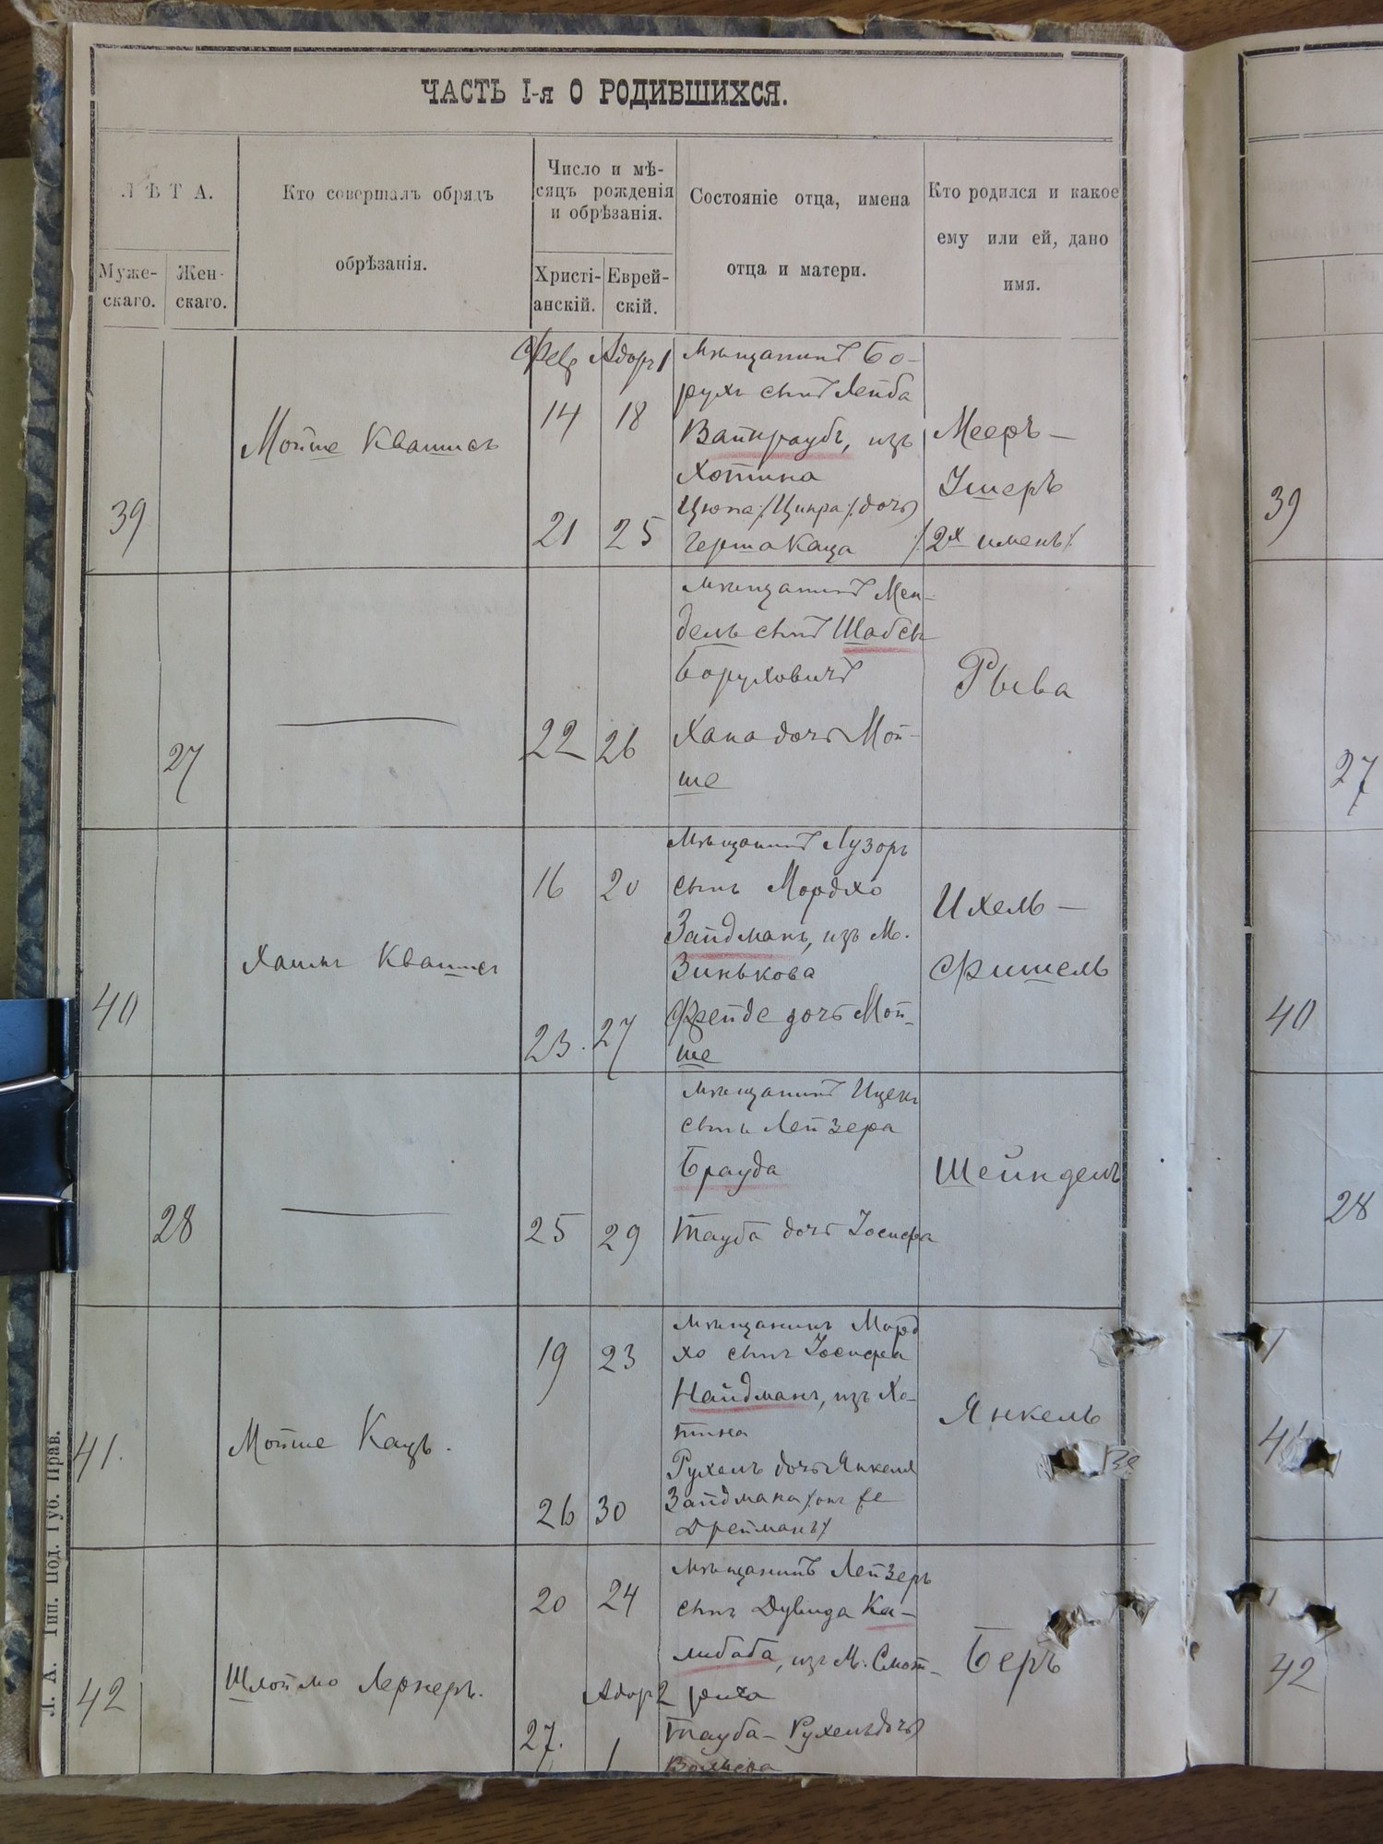 ЧАСТЬ I-я О РОДИВШИХСЯ.
Л Ѣ Т А.
Муже-
скаго.
Жен-
скаго.
Кто совершалъ обрядъ
обрѣзанія.
Число и мѣ-
сяцъ рожденія
и обрѣзанія.
Христі-
анскій.
Еврей-
скій.
Состояніе отца, имена
отца и матери.
Кто родился и какое
ему или ей, дано
имя.
39
Мойше Квашисъ
Фев
14
21
Адаръ 1
18
25
Мѣщанинъ Бо-
рухъ сынъ Лейба
Вайнраубъ, изъ
Хотина
Цюпа /Ципра/ дочь
Герша Каца
Мееръ —
Ушеръ
/2х именъ/
39
27
22
26
Мѣщанинъ Мен-
дель сынъ Шабсы
Боруховичъ
Хана дочь Мой-
ше
Рыва
27
40
Хаимъ Квашисъ
16
23.
20
27
Мѣщанинъ Лузоръ
сынъ Мордхо
Зайдманъ, изъ М.
Зинькова
Фрейде дочь Мой-
ше
Ихель —
Фишель
40
28
25
29
Мѣщанинъ Ицекъ
сынъ Лейзера
Брауда
Тауба дочь Іосифа
Шейндель
28
41.
Мойше Кацъ.
19
26
23
30
Мѣщанинъ Мард
хо сынъ Іосифа
Найдманъ, изъ Хо-
тина
Рухель дочь Янкеля
Зайдмана /онъ же
Дрейманъ/
Янкель
41
42
Шлоймо Лернеръ.
20
27.
24
Адаръ 2
1
Мѣщанинъ Лейзеръ
сынъ Дувида Ка-
либаба, изъ М. Смот-
рича
Тауба - Рухель дочь
Вольева
Беръ
42
Л. А. Тип. Под. Губ. Прав.